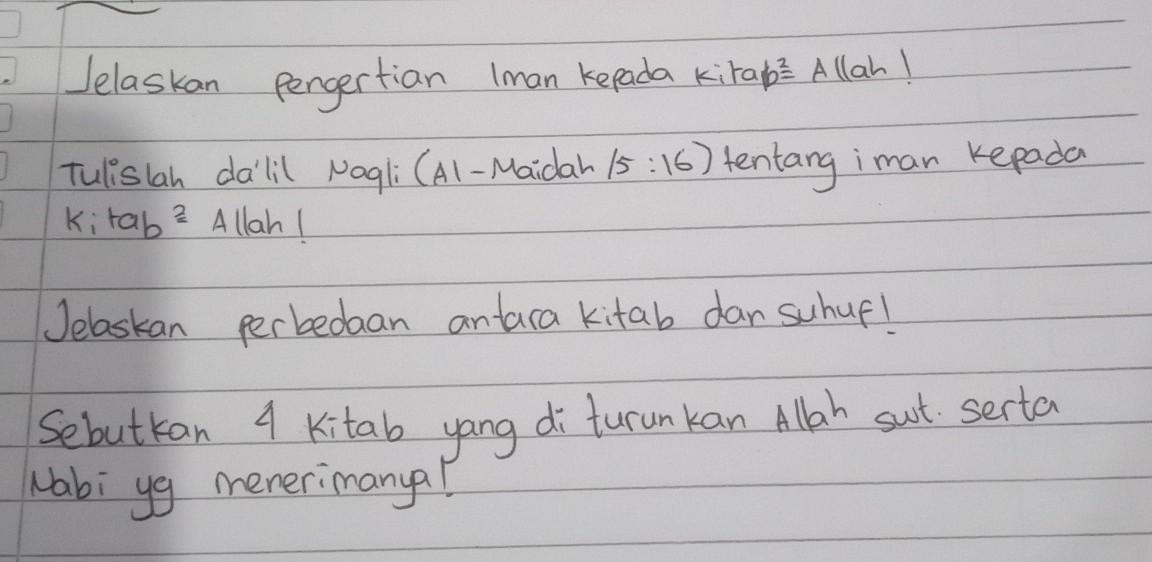 Jelaskan pengertian Iman kepada kitab² Allah!
Tulislah da'lil Naqli (Al-Maidah /5:16) tentang iman kepada
Kitab² Allah!
Jelaskan perbedaan antara kitab dan suhuf!
Sebutkan 4 Kitab yang di turunkan Allah swt. serta
Nabi yg menerimanya!